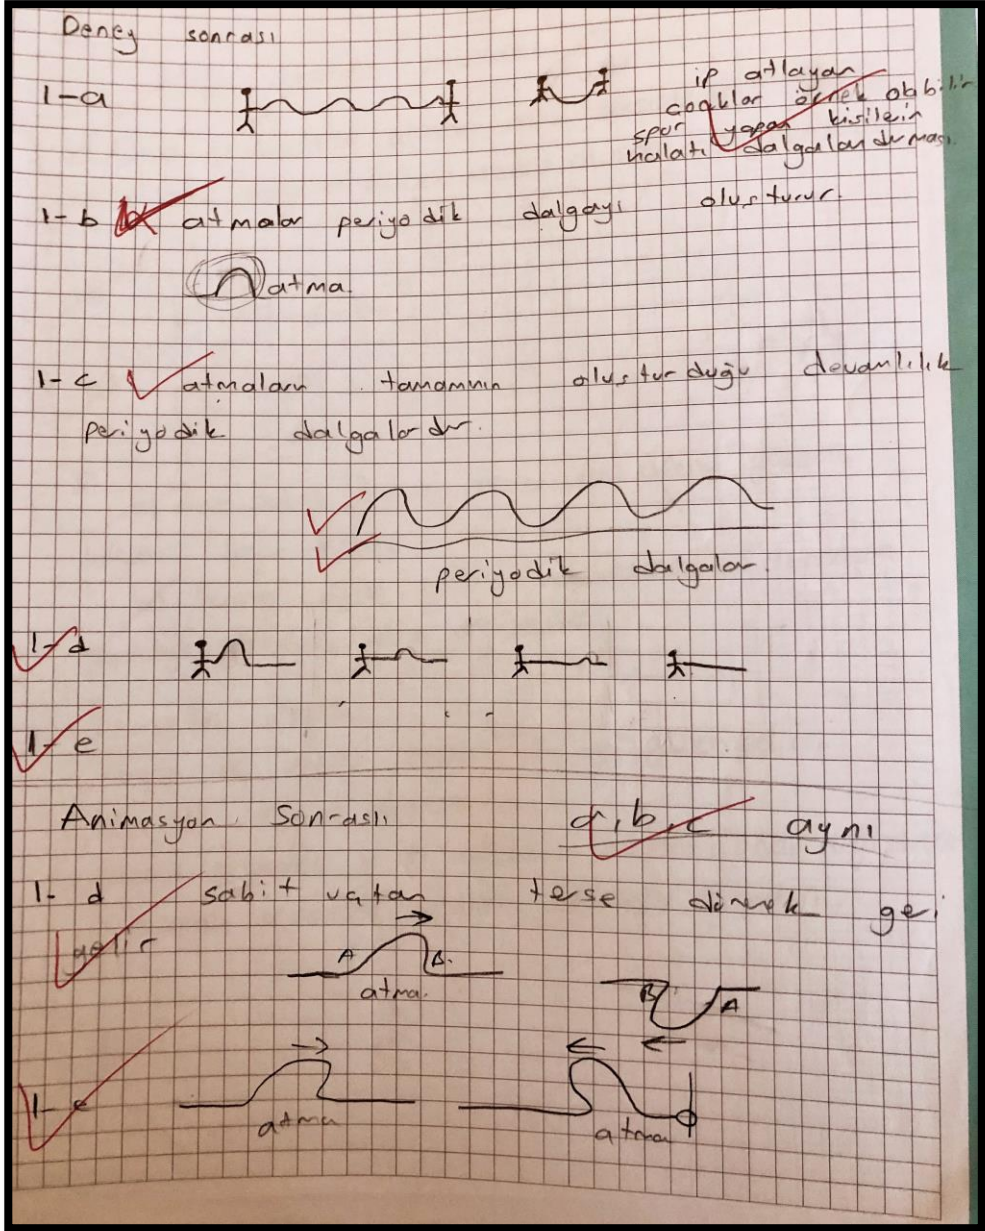 Deney sonrası
1-a
ip atlayan
çocuklar örnek olabilir
spor yapan kişilerin
halatı dalgalandırması.
1-b atmalar periyodik dalgayı oluşturur.
atma.
1-c atmaların tamamının oluşturduğu devamlılık
periyodik dalgalardır.
periyodik dalgalar.
1-d
1-e
Animasyon Sonrası a,b,c aynı
1-d sabit uçtan terse dönerek geri
gelir
A B.
atma.
B A
1-e
atma
atma